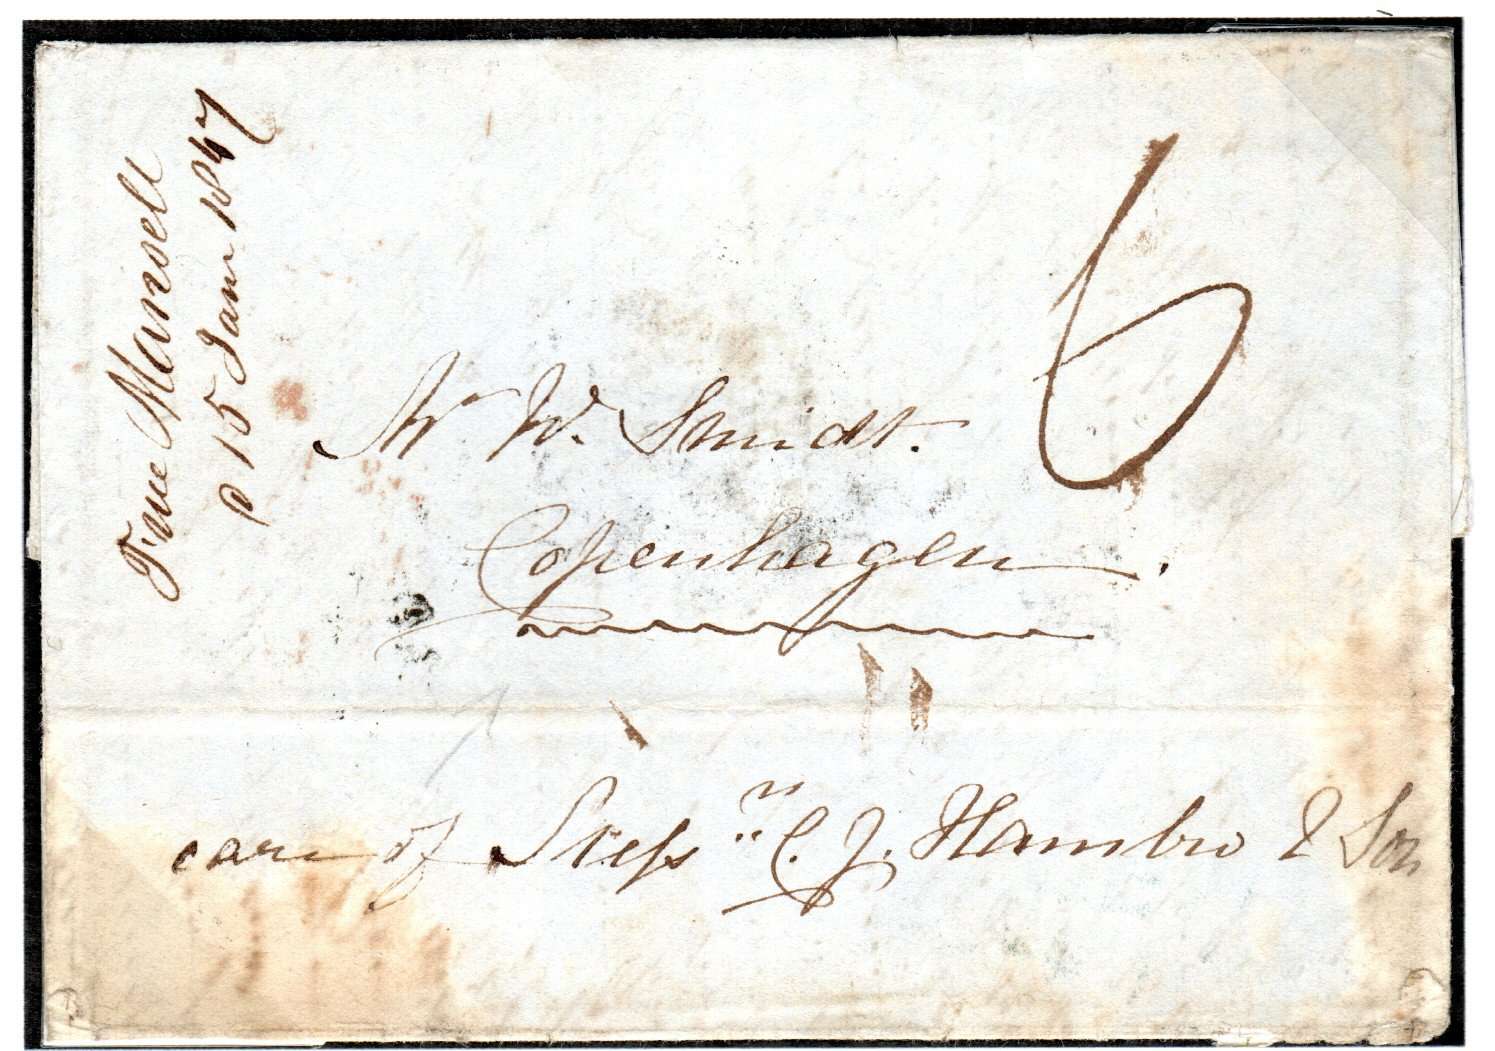 True Mansell
p 15 Jany 1847
6
Mr W. Smidt.
Copenhagen.
care of C. J. Hambro & Son